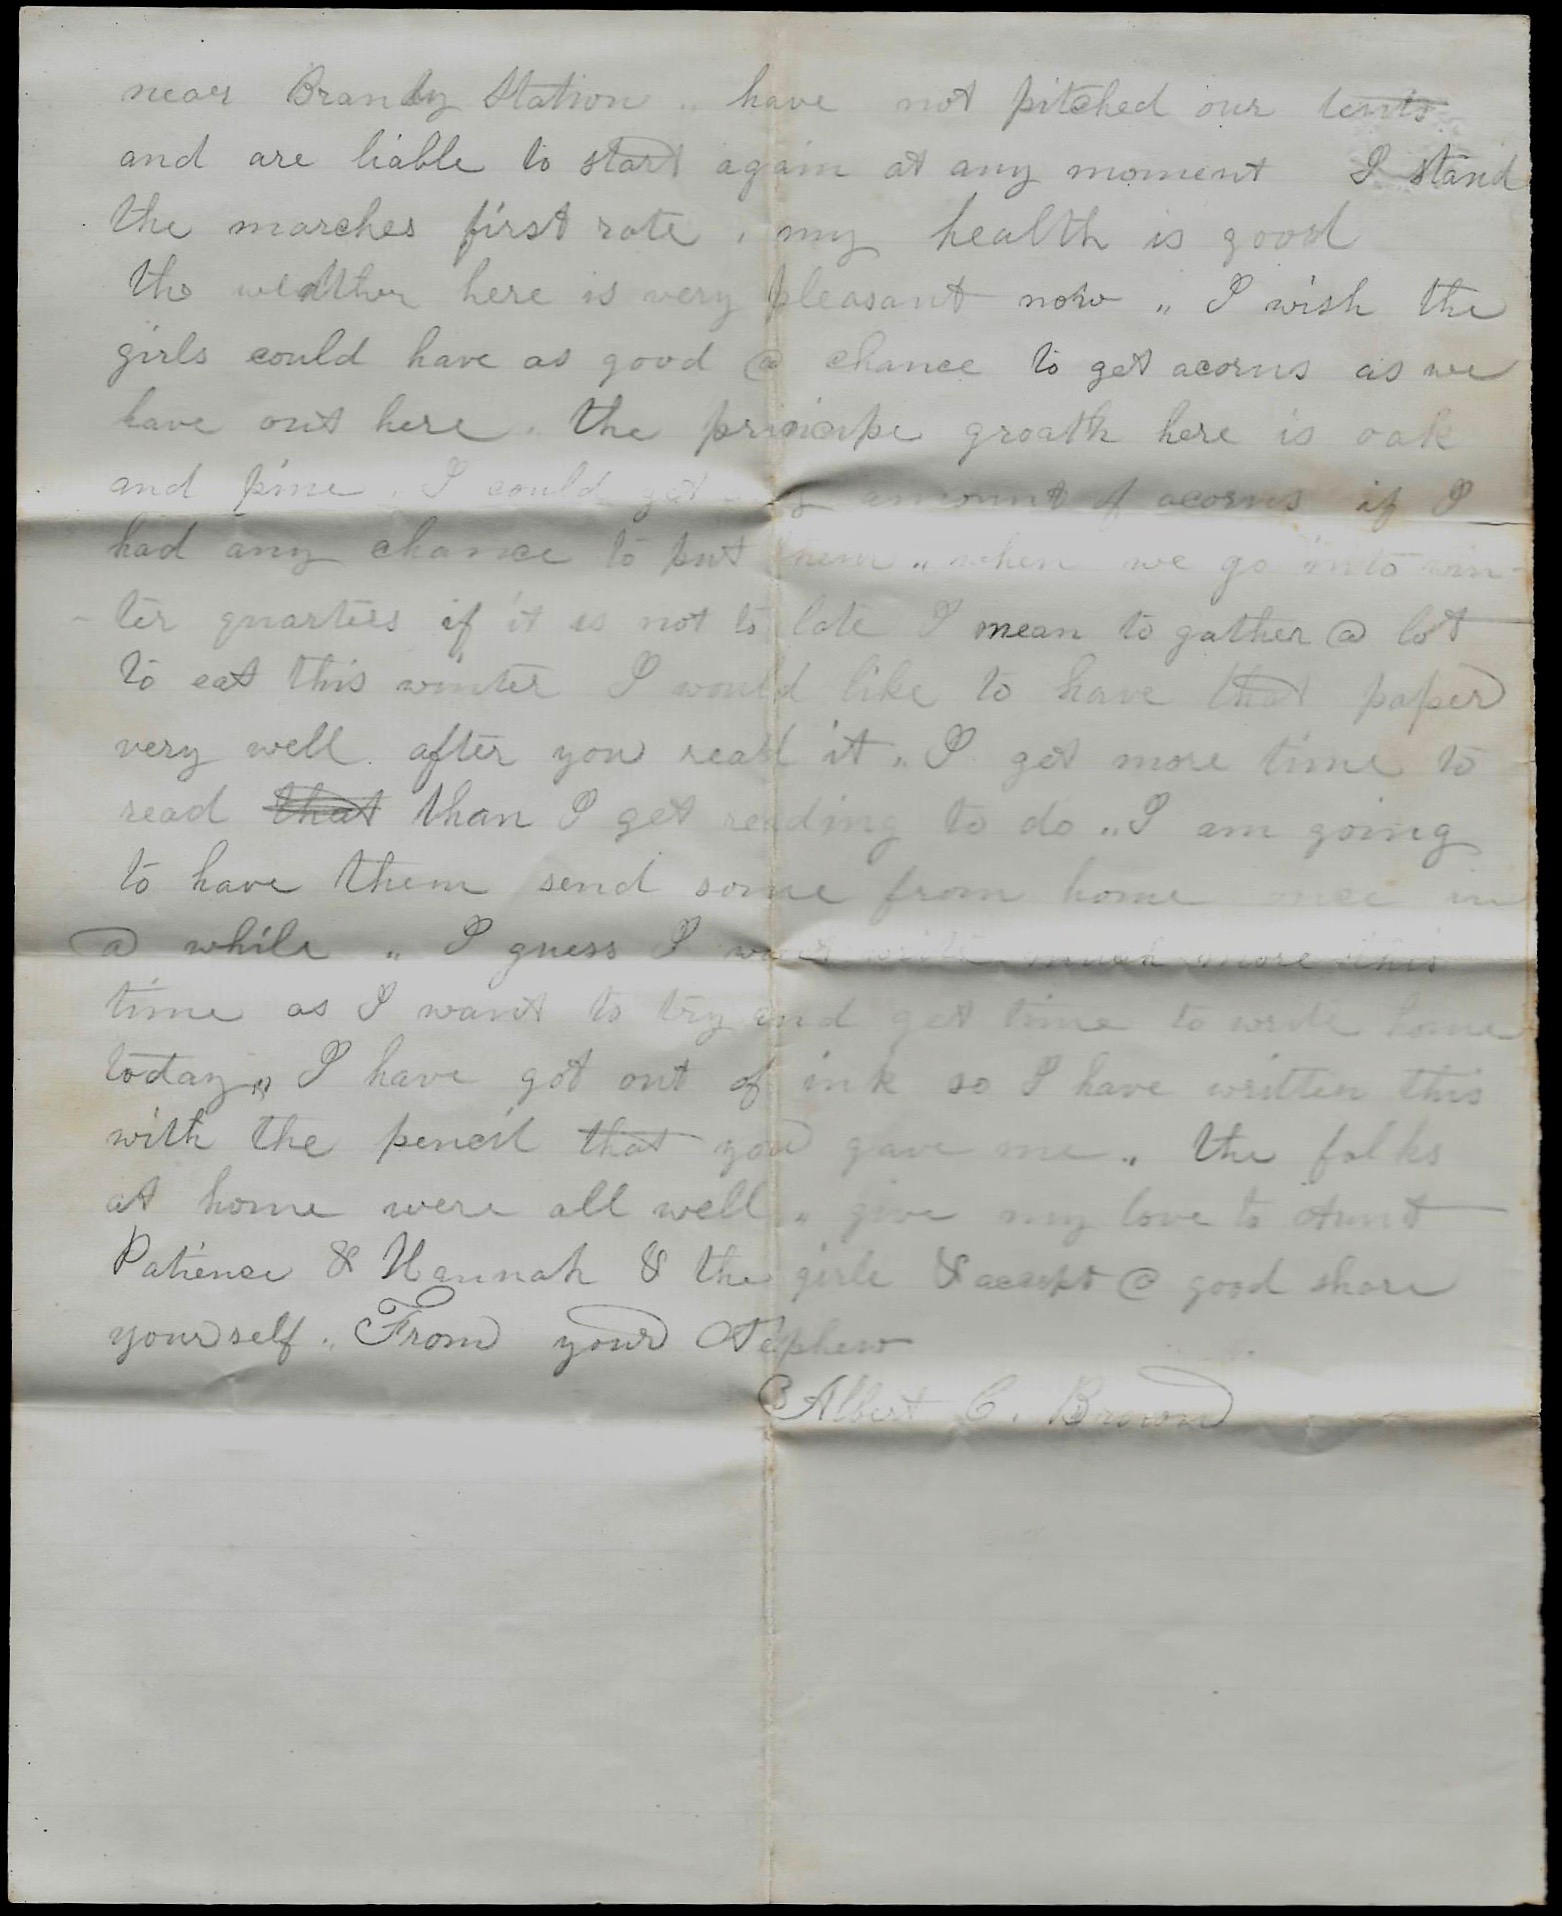 near Brandy Station „ have not pitched our tents
and are liable to start again at any moment I stand
the marches first rate , my health is good
the weather here is very pleasant now „ I wish the
girls could have as good @ chance to get acorns as we
have out here . the principe groath here is oak
and pine . I could get any amount of acorns if I
had any chance to put them „ when we go into win-
-ter quarters if it is not to late I mean to gather @ lot
to eat this winter I would like to have that paper
very well after you read it „ I get more time to
read that than I get reading to do „ I am going
to have them send some from home once in
a while „ I guess I wont write much more this
time as I want to try and get time to write home
today „ I have got out of ink so I have written this
with the pencil that you gave me „ the folks
at home were all well „ give my love to Aunt
Patience & Hannah & the girls & accept @ good share
yourself „ From your Nephew
Albert C. Brown